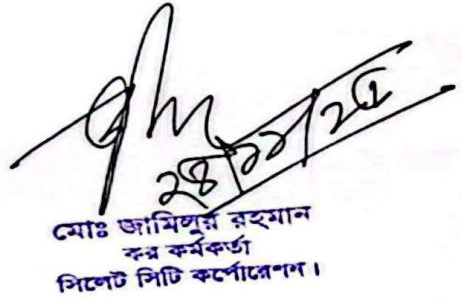 ২৪/১১/২৫
মোঃ জামিলুর রহমান
কর কর্মকর্তা
সিলেট সিটি কর্পোরেশন।